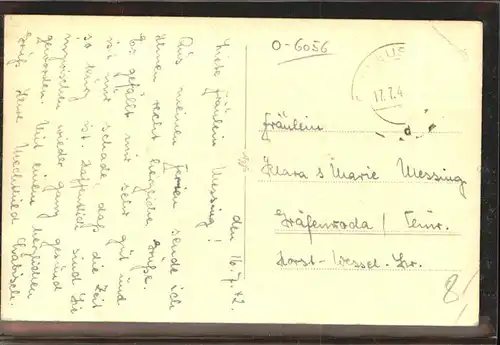 den 16.7.42.
Liebe Fräulein Messing!
Aus meinen Ferien sende ich
Ihnen recht herzliche Grüße.
Es gefällt mir sehr gut und
ist nur schade, daß die Zeit
so kurz ist. Hoffentlich sind Sie
inzwischen wieder ganz gesund
geworden. Mit einem herzlichen
Gruß Ihre Mechthild
O-6056
17.7.4
Fräulein
Klara s Marie Messing
Gräfenroda / Thür.
Horst-Wessel-Str.
8/